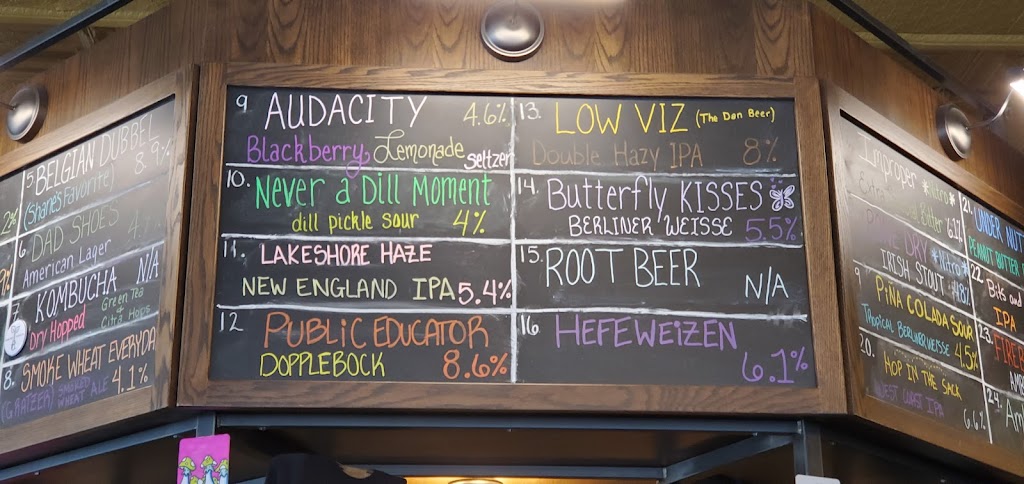 5 BELGIAN DUBBEL
(Shane's Favorite) 8.9%
2%
6. DAD SHOES
American Lager
KOMBUCHA N/A
Dry Hopped Green Tea + Citra Hops
8. SMOKE WHEAT EVERYDA
(GRATZER) SMOKED WHEAT ALE 4.1%
9 AUDACITY 4.6%
Blackberry Lemonade seltzer
10. Never a Dill Moment
dill pickle sour 4%
11. LAKESHORE HAZE
NEW ENGLAND IPA 5.4%
12 PUBLIC EDUCATOR
DOPPLEBOCK 8.6%
13. LOW VIZ (The Dan Beer)
Double Hazy IPA 8%
14. Butterfly KISSES
BERLINER WEISSE 5.5%
15. ROOT BEER
N/A
16 HEFEWEIZEN
6.1%
Improper *Nitro*
Bitter
DRY *Nitro*
IRISH STOUT
PIÑA COLADA SOUR
Tropical Berliner Weisse 4.5%
20. HOP IN THE SACK
WEST COAST IPA
6.6%
21. UNDER
PEANUT BUTTER
22. Bits and
IPA
23.
24.